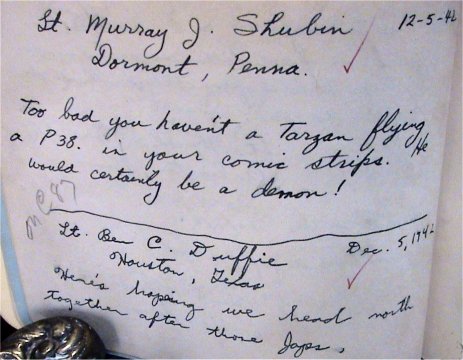 Lt. Murray J. Shubin 12-5-42
Dormont, Penna.
Too bad you haven't a Tarzan flying
a P38. in your comic strips. He
would certainly be a demon!
Lt. Ben C. Duffie Dec. 5, 1942
Houston, Texas
Here's hoping we head north
together after those Japs.